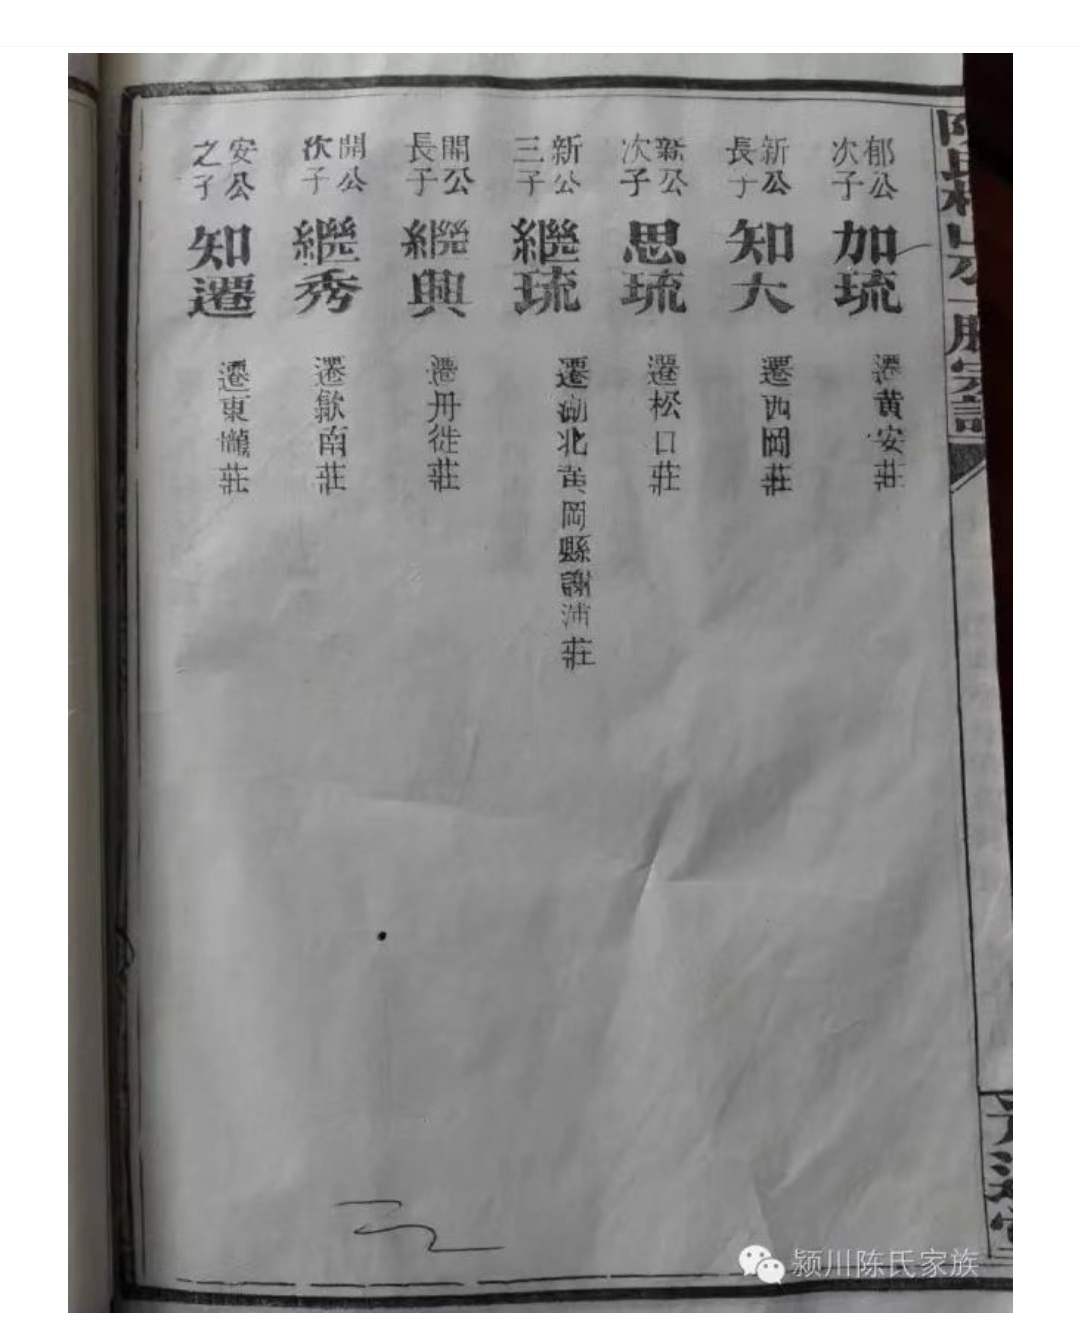 郁公
次子
加琉
遷黄安莊
新公
長子
知大
遷西岡莊
新公
次子
思琉
遷松口莊
新公
三子
繼琉
遷湖北黄岡縣謝沛莊
開公
長子
繼興
遷丹徙莊
開公
次子
繼秀
遷歙南莊
安公
之子
知遷
遷東巃莊
颍川陈氏家族